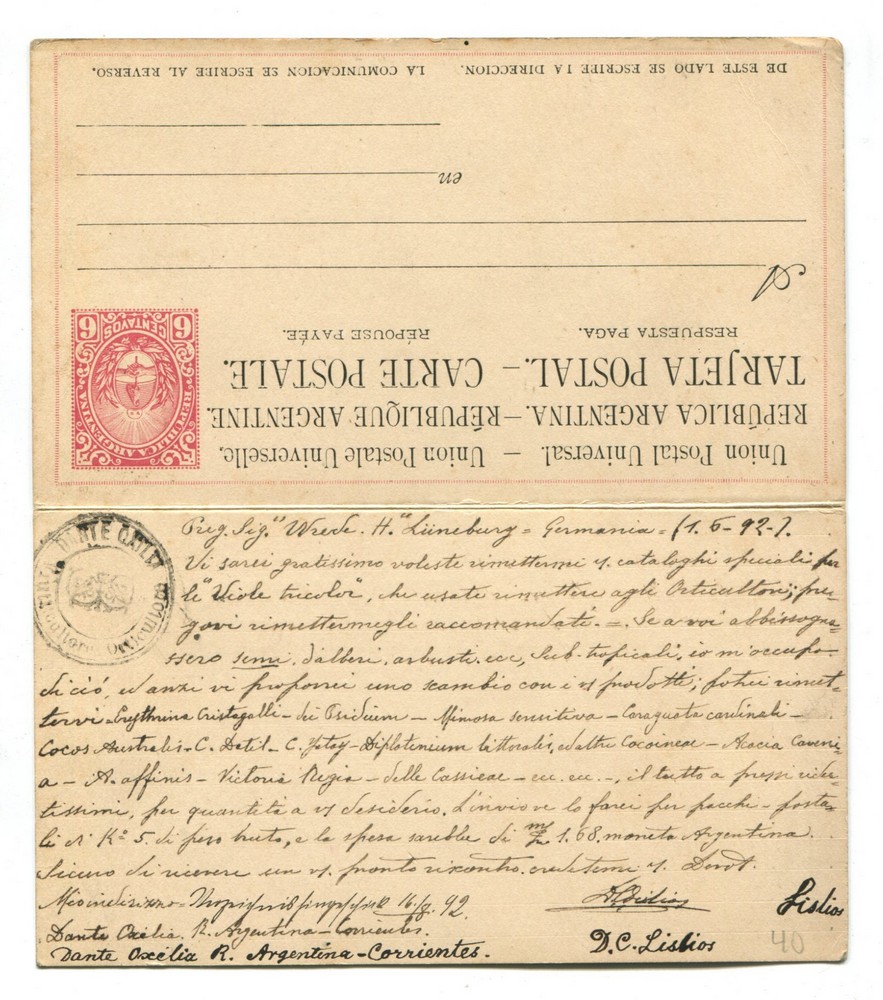 DE ESTE LADO SE ESCRIBE LA DIRECCION. LA COMUNICACION SE ESCRIBE AL REVERSO.
en
A
RESPUESTA PAGA. RÉPOUSE PAYÉE.
TARJETA POSTAL. – CARTE POSTALE.
REPÚBLICA ARGENTINA. – RÉPUBLIQUE ARGENTINE.
Union Postal Universal. – Union Postale Universelle.
REPUBLICA ARGENTINA
6 CENTAVOS 6
DANTE
Preg. Sig. Wrede. H. Lüneburg = Germania = (1. 6 - 92 -).
Vi sarei gratissimo voleste rimettermi i vs. cataloghi speciali per
le "Viole tricolor", che usate rimettere agli Orticultori; pre=
govi rimettermegli raccomandati. =. Se a voi abbisogna=
ssero semi, d'alberi, arbusti. ecc, sub-tropicali, io m'occupo
di ció, ed anzi vi proporrei uno scambio con i vs prodotti; potrei rimet=
tervi - Erythrina Cristagalli - dei Psidium - Mimosa sensitiva - Caraguata cardinali -
Cocos Australis - C. Datil - C. Yatay - Diplotenium littoralis, ed altre Cocoineae - Acacia Caveni=
a - A. affinis - Victoria Regia - delle Cassieae - ecc. ecc. -, il tutto a prezzi ridot=
tissimi, per quantetá a vs desiderio. L'invio ve lo farei per pacchi - posta=
li di Kº 5. di peso bruto, e la spesa sarebbe di m/n 1.68. moneta Argentina.
Sicuro di ricevere un vs. pronto riscontro. credetemi vs. Devot.
Mio indirizzo - 16/8. 92.
Dante Oxilia. R. Argentina - Corrientes.
Dante Oxcélia R. Argentina - Corrientes.
D. C. Lislios
Lislios
40